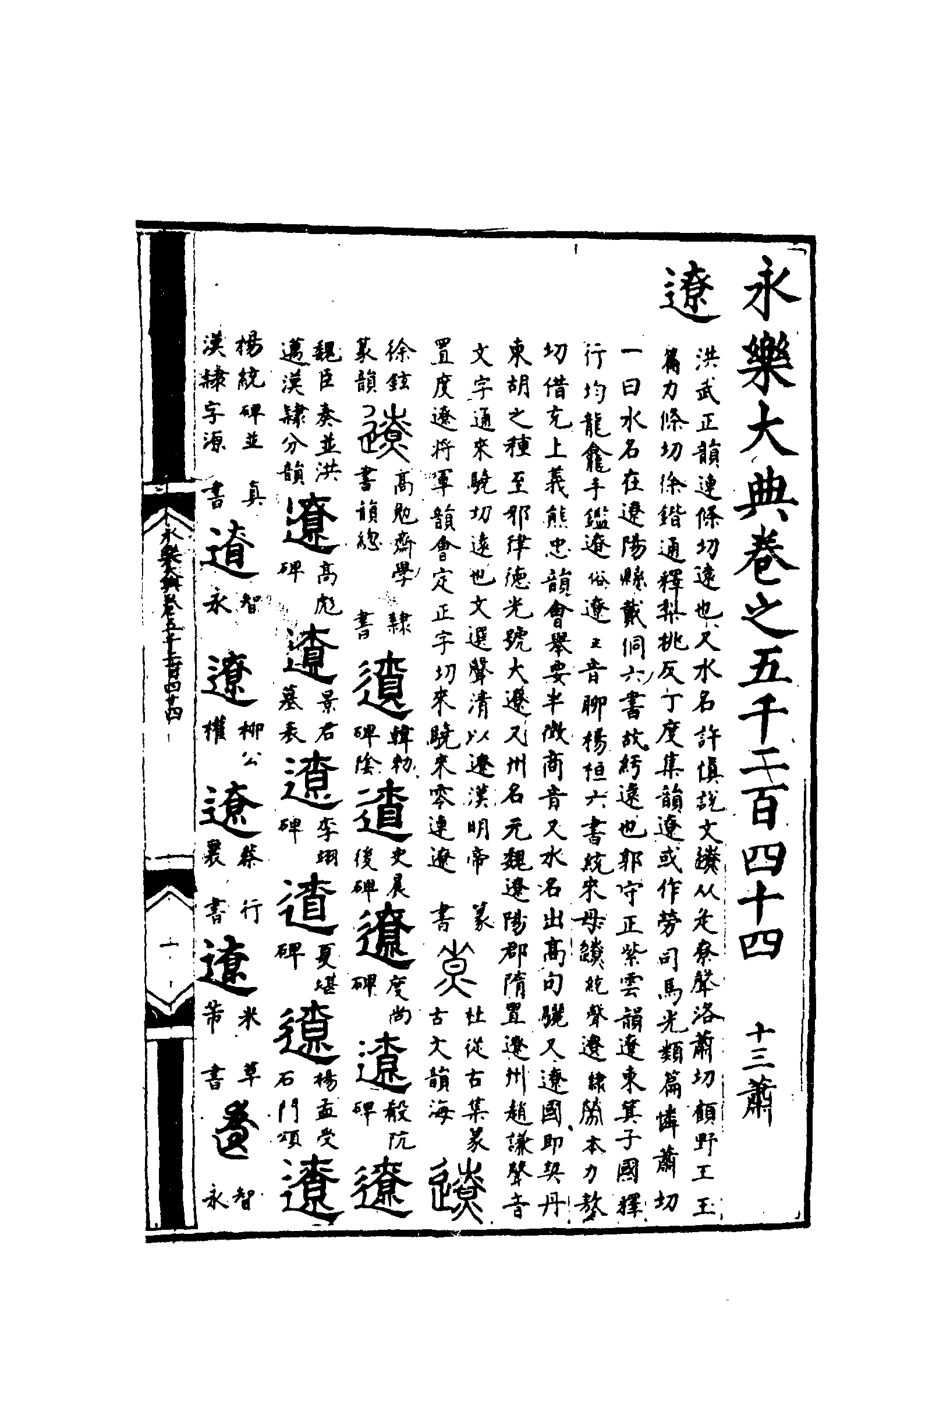 永樂大典卷之五千二百四十四　十三蕭
遼
洪武正韻連條切遠也又水名許慎說文𨖚从辵尞聲洛蕭切顧野王玉
篇力條切徐鍇通釋梨挑反丁度集韻遼或作勞司馬光類篇憐蕭切
一曰水名在遼陽縣戴侗六書故紆遠也郭守正紫雲韻遼東箕子國釋
行均龍龕手鑑遼俗遼正音聊楊桓六書統來母𨖚統聲遼隸勞本力嫯
切借充上義熊忠韻會舉要半徵商音又水名出高句驪又遼國即契丹
東胡之種至耶律德光號大遼又州名元魏遼陽郡隋置遼州趙謙聲音
文字通來驍切遠也文選聲清以遼漢明帝
置度遼將軍韻會定正字切來驍來零連遼
篆書
尞
杜從古集篆古文韻海
遼
徐鉉篆韻
遼
高勉齋學書韻總
隸書
遼
韓勑碑陰
遼
史晨後碑
遼
度尚碑
遼
殽阮碑
遼
魏臣奏並洪邁漢隸分韻
遼
高彪碑
遼
景君墓表
遼
李翊碑
遼
夏堪碑
遼
楊孟受石門頌
遼
楊統碑並漢隸字源
真書
遼
智永
遼
柳公權
遼
蔡襄
行書
遼
米芾
草書
遼
智永
永樂大典卷五千二百四十四
一